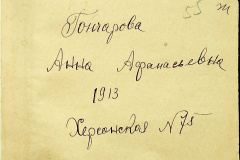 55 ж
Гончарова
Анна Афанасьевна
1913
Херсонская N 75